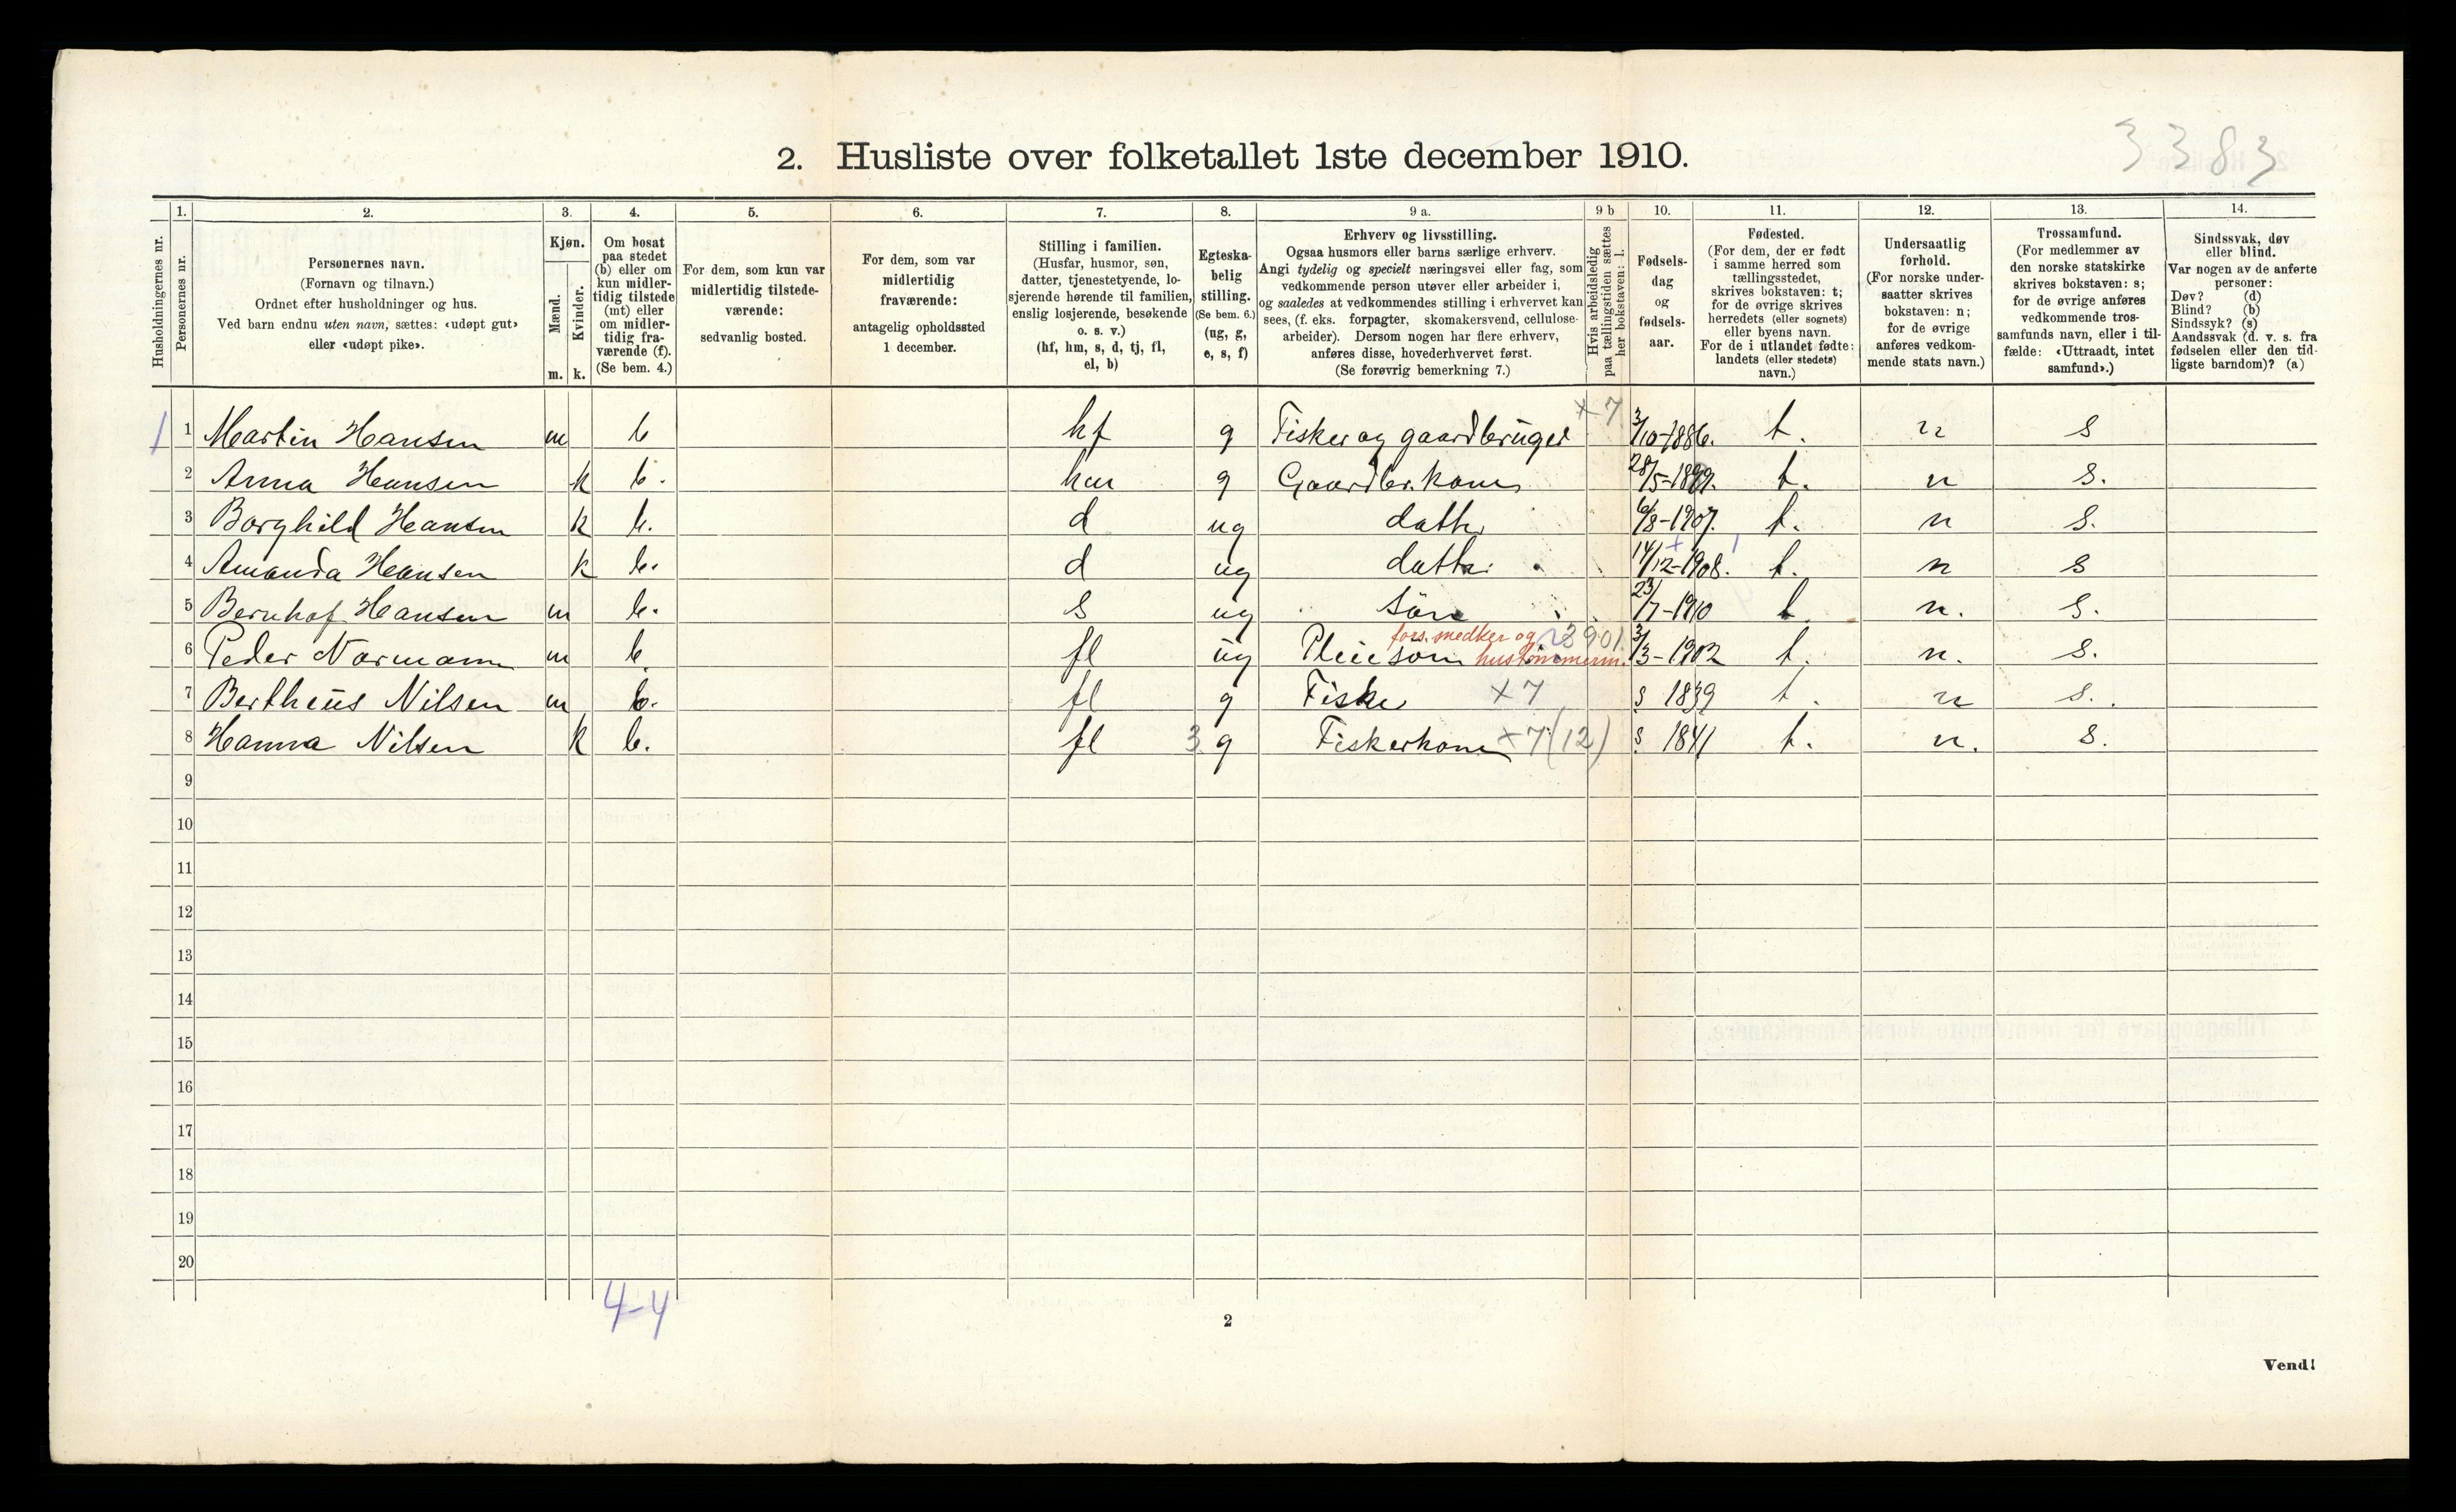 3383
2. Husliste over folketallet 1ste december 1910.
1. 2. 3. 4. 5. 6. 7. 8. 9 a. 9 b 10. 11. 12. 13. 14.
Husholdningernes nr.
Personernes nr.
Personernes navn.
(Fornavn og tilnavn.)
Ordnet efter husholdninger og hus.
Ved barn endnu uten navn, sættes: «udøpt gut»
eller «udøpt pike».
Kjøn.
Mænd.
Kvinder.
m. k.
Om bosat
paa stedet
(b) eller om
kun midler-
tidig tilstede
(mt) eller
om midler-
tidig fra-
værende (f).
(Se bem. 4.)
For dem, som kun var
midlertidig tilstede-
værende:
sedvanlig bosted.
For dem, som var
midlertidig
fraværende:
antagelig opholdssted
1 december.
Stilling i familien.
(Husfar, husmor, søn,
datter, tjenestetyende, lo-
sjerende hørende til familien,
enslig losjerende, besøkende
o. s. v.)
(hf, hm, s, d, tj, fl,
el, b)
Egteska-
belig
stilling.
(Se bem. 6.)
(ug, g,
e, s, f)
Erhverv og livsstilling.
Ogsaa husmors eller barns særlige erhverv.
Angi tydelig og specielt næringsvei eller fag, som
vedkommende person utøver eller arbeider i,
og saaledes at vedkommendes stilling i erhvervet kan
sees, (f. eks. forpagter, skomakersvend, cellulose-
arbeider). Dersom nogen har flere erhverv,
anføres disse, hovederhvervet først.
(Se forøvrig bemerkning 7.)
Hvis arbeidsledig
paa tællingstiden sættes
her bokstaven: l.
Fødsels-
dag
og
fødsels-
aar.
Fødested.
(For dem, der er født
i samme herred som
tællingsstedet,
skrives bokstaven: t;
for de øvrige skrives
herredets (eller sognets)
eller byens navn.
For de i utlandet fødte:
landets (eller stedets)
navn.)
Undersaatlig
forhold.
(For norske under-
saatter skrives
bokstaven: n;
for de øvrige
anføres vedkom-
mende stats navn.)
Trossamfund.
(For medlemmer av
den norske statskirke
skrives bokstaven: s;
for de øvrige anføres
vedkommende tros-
samfunds navn, eller i til-
fælde: «Uttraadt, intet
samfund».)
Sindssvak, døv
eller blind.
Var nogen av de anførte
personer:
Døv? (d)
Blind? (b)
Sindssyk? (s)
Aandssvak (d. v. s. fra
fødselen eller den tid-
ligste barndom)? (a)
1 1 Martin Hansen m b hf g Fisker og gaardbruger x 7 3/10-1886. t. n s
2 Anna Hansen k b. hm g Gaardbr. kone 28/5- t. n s.
3 Borghild Hansen k b. d ug datter 6/8-1907. t. n s.
4 Amanda Hansen k b. d ug datter 14/12-1908. t. n s
5 Bernhof Hansen m b. s ug sön 23/7-1910 t n. s.
fors. medker og
6 Peder Normann m b. fl ug Pleieson hustömmerm. 3/3-1902 t. n. s.
7 Bertheus Nilsen m b. fl g Fisker x 7 s 1839 t. n s.
8 Hanna Nilsen k b. fl 3 g Fiskerkone x 7 (12) s 1841 t. n. s.
9
10
11
12
13
14
15
16
17
18
19
20
4-4
2
Vend!